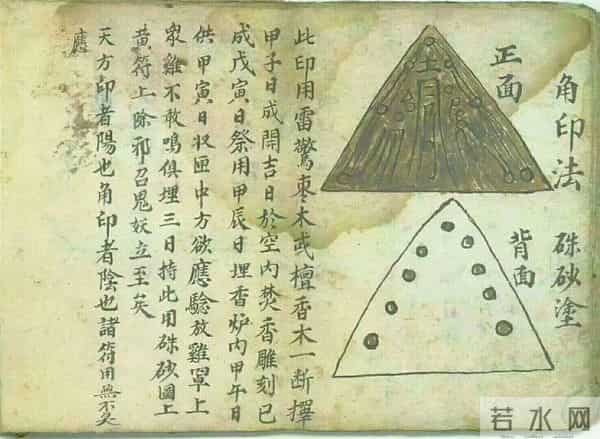 角印法
硃砂塗
正面
背面
此印用雷驚棗木或檀香木一斷擇
甲子日成開吉日於空内焚香雕刻已
成戊寅日祭用甲辰日埋香炉内甲午日
供甲寅日収匣中方欲應驗放雞罩上
眾雞不敢鳴俱埋三日持此用硃砂圖上
黄符上除邪召鬼妖立至矣
天方印者陽也角印者陰也諸符用無不灵
應
若水网